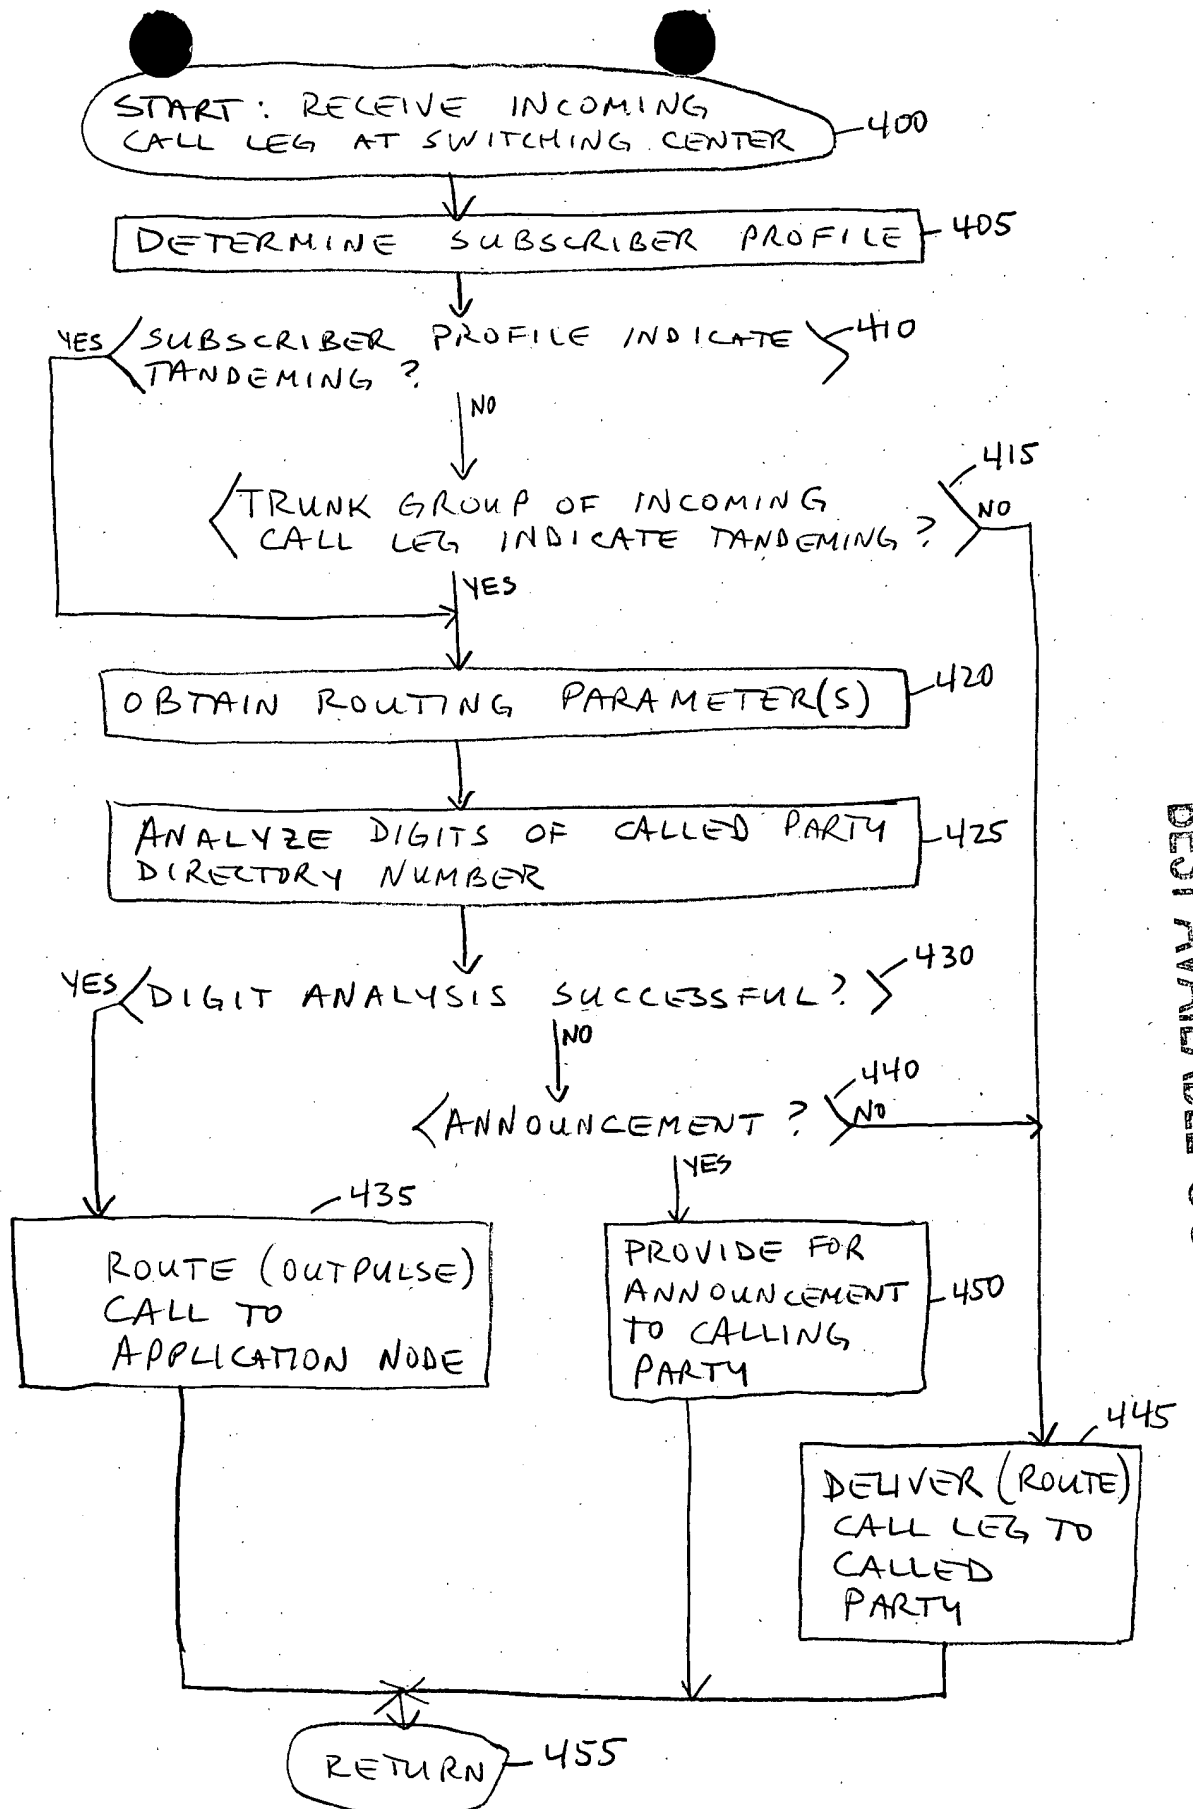 START: RECEIVE INCOMING
CALL LEG AT SWITCHING CENTER
400
DETERMINE SUBSCRIBER PROFILE
405
YES
SUBSCRIBER PROFILE INDICATE
TANDEMING?
410
NO
415
TRUNK GROUP OF INCOMING
CALL LEG INDICATE TANDEMING?
NO
YES
OBTAIN ROUTING PARAMETER(S)
420
ANALYZE DIGITS OF CALLED PARTY
DIRECTORY NUMBER
425
YES
DIGIT ANALYSIS SUCCESSFUL?
430
NO
440
ANNOUNCEMENT?
NO
YES
435
ROUTE (OUTPULSE)
CALL TO
APPLICATION NODE
PROVIDE FOR
ANNOUNCEMENT
TO CALLING
PARTY
450
445
DELIVER (ROUTE)
CALL LEG TO
CALLED
PARTY
RETURN
455
BEST